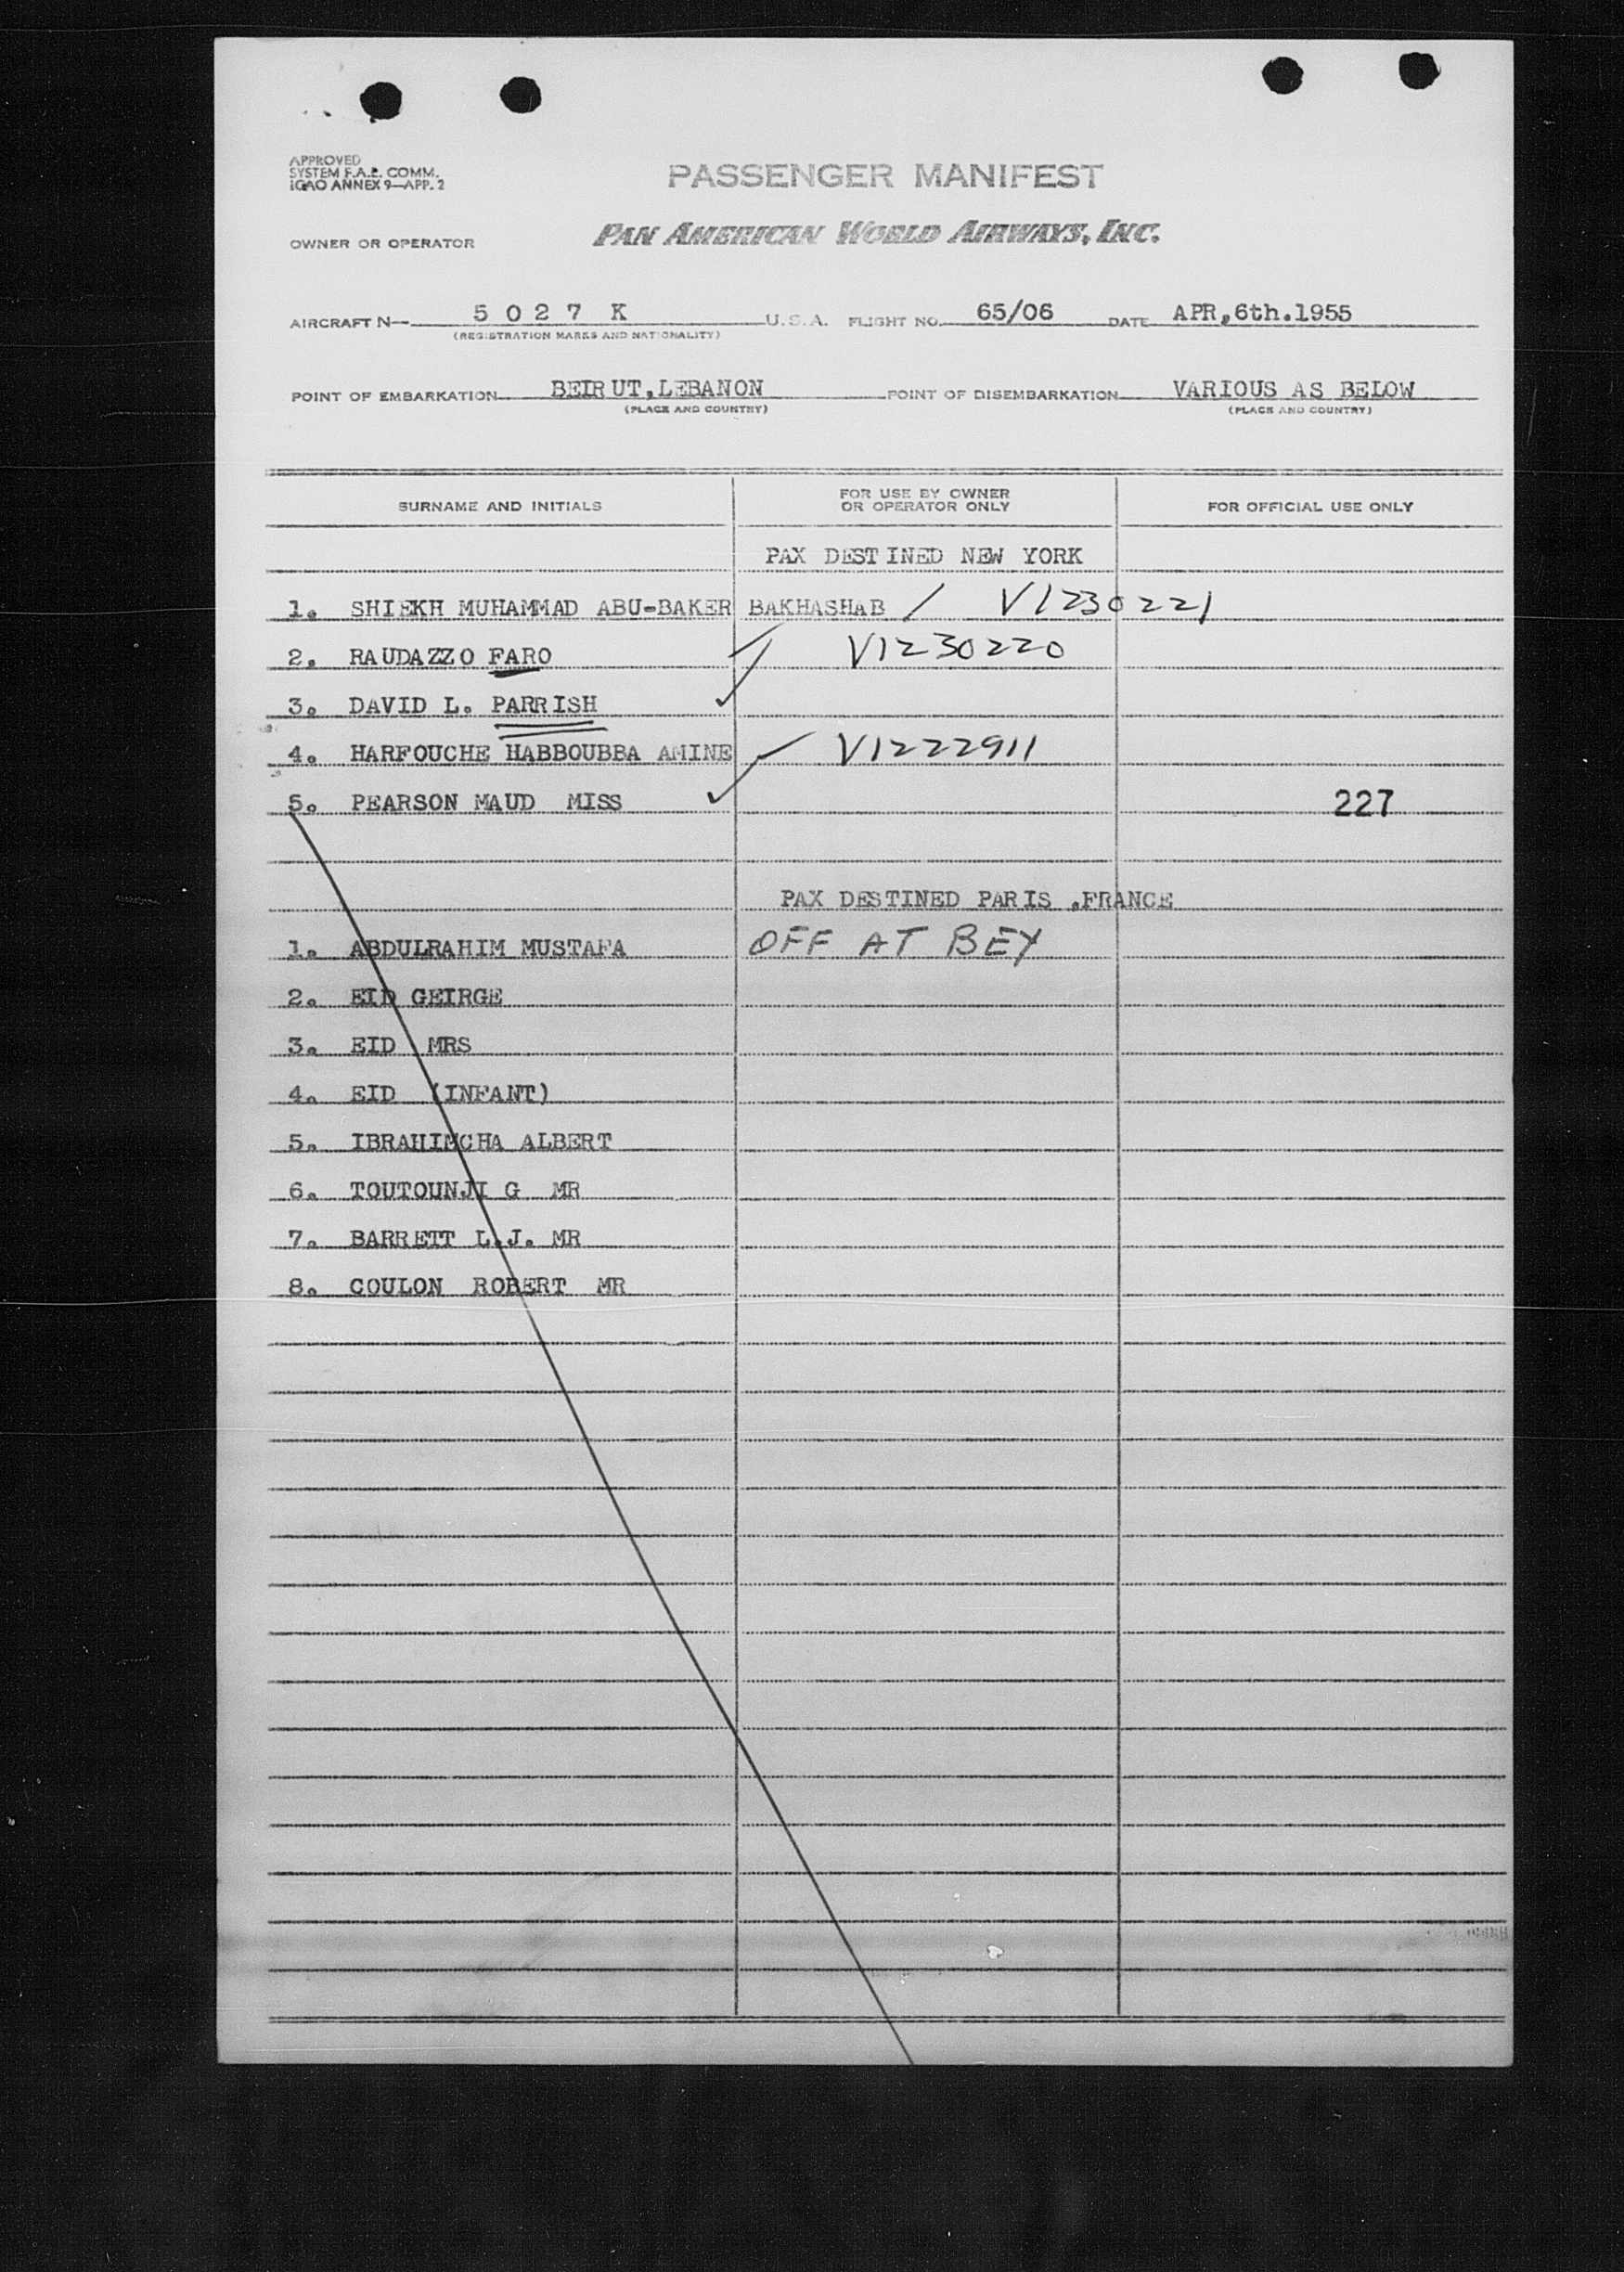 APPROVED
SYSTEM F.A.L. COMM.
ICAO ANNEX 9—APP. 2
PASSENGER MANIFEST
OWNER OR OPERATOR PAN AMERICAN WORLD AIRWAYS, INC.
AIRCRAFT N— 5 0 2 7 K U.S.A. FLIGHT NO. 65/06 DATE APR,6th.1955
(REGISTRATION MARKS AND NATIONALITY)
POINT OF EMBARKATION BEIRUT,LEBANON POINT OF DISEMBARKATION VARIOUS AS BELOW
(PLACE AND COUNTRY) (PLACE AND COUNTRY)
SURNAME AND INITIALS FOR USE BY OWNER OR OPERATOR ONLY FOR OFFICIAL USE ONLY
PAX DESTINED NEW YORK
1. SHIEKH MUHAMMAD ABU-BAKER BAKHASHAB / V1230221
2. RAUDAZZO FARO ✓ V1230220
3. DAVID L. PARRISH ✓
4. HARFOUCHE HABBOUBBA AMINE ✓ V1222911
5. PEARSON MAUD MISS ✓ 227
PAX DESTINED PARIS ,FRANCE
1. ABDULRAHIM MUSTAFA OFF AT BEY
2. EID GEIRGE
3. EID MRS
4. EID (INFANT)
5. IBRAHIMCHA ALBERT
6. TOUTOUNJI G MR
7. BARRETT L.J. MR
8. COULON ROBERT MR